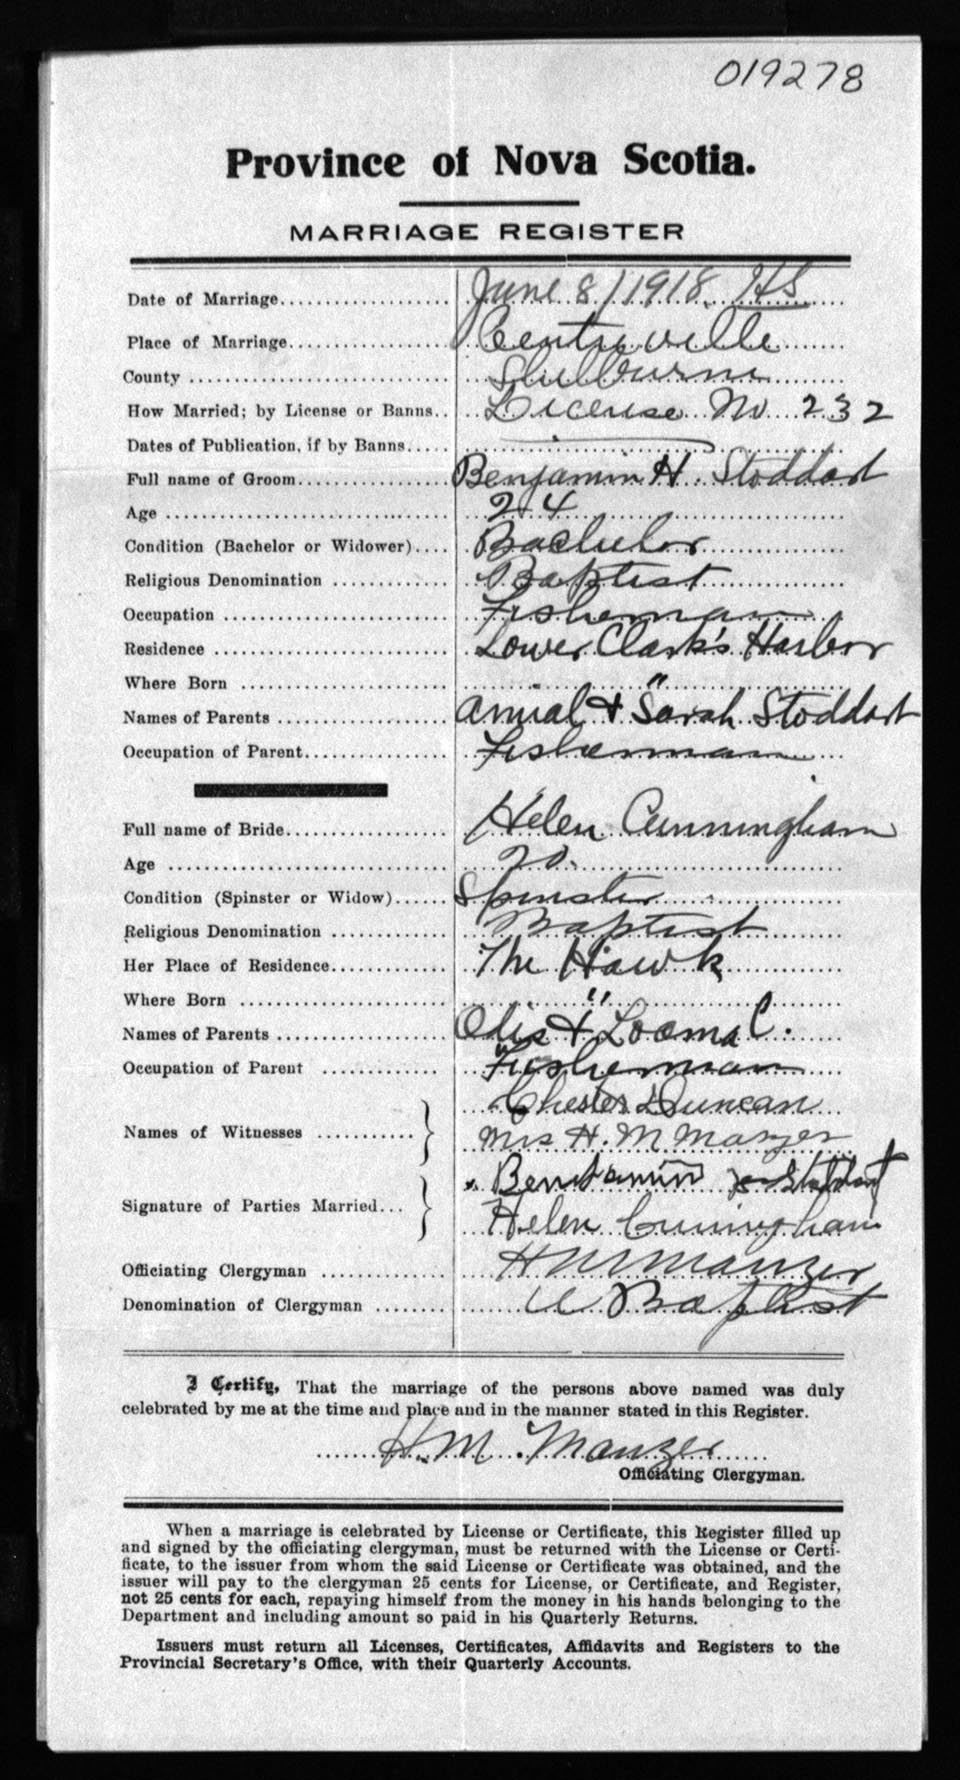 019278
Province of Nova Scotia.
MARRIAGE REGISTER
Date of Marriage................... June 8/1918. HS
Place of Marriage.................. Centreville
County ............................. Shelburne
How Married; by License or Banns.. License No 232
Dates of Publication, if by Banns.....
Full name of Groom................. Benjamin H. Stoddart
Age ................................ 24
Condition (Bachelor or Widower).... Bachelor
Religious Denomination ............. Baptist
Occupation ......................... Fisherman
Residence .......................... Lower Clark's Harbor
Where Born ......................... "
Names of Parents ................... & Sarah Stoddart
Occupation of Parent................ Fisherman
Full name of Bride.................. Helen Cunningham
Age ................................ 20.
Condition (Spinster or Widow)...... Spinster
Religious Denomination ............. Baptist
Her Place of Residence............. The Hawk
Where Born ......................... "
Names of Parents ................... & C.
Occupation of Parent ............... Fisherman
Chester Duncan
Names of Witnesses ............ } Mrs H. M Manzer
Benjamin Stoddart
Signature of Parties Married... } Helen Cuningham
Officiating Clergyman .............. H M Manzer
Denomination of Clergyman ........ U Baptist
I Certify, That the marriage of the persons above named was duly
celebrated by me at the time and place and in the manner stated in this Register.
H. M. Manzer
Officiating Clergyman.
When a marriage is celebrated by License or Certificate, this Register filled up
and signed by the officiating clergyman, must be returned with the License or Certi-
ficate, to the issuer from whom the said License or Certificate was obtained, and the
issuer will pay to the clergyman 25 cents for License, or Certificate, and Register,
not 25 cents for each, repaying himself from the money in his hands belonging to the
Department and including amount so paid in his Quarterly Returns.
Issuers must return all Licenses, Certificates, Affidavits and Registers to the
Provincial Secretary's Office, with their Quarterly Accounts.